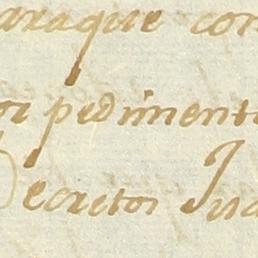 araque con
or pedimento
Decretos Jud